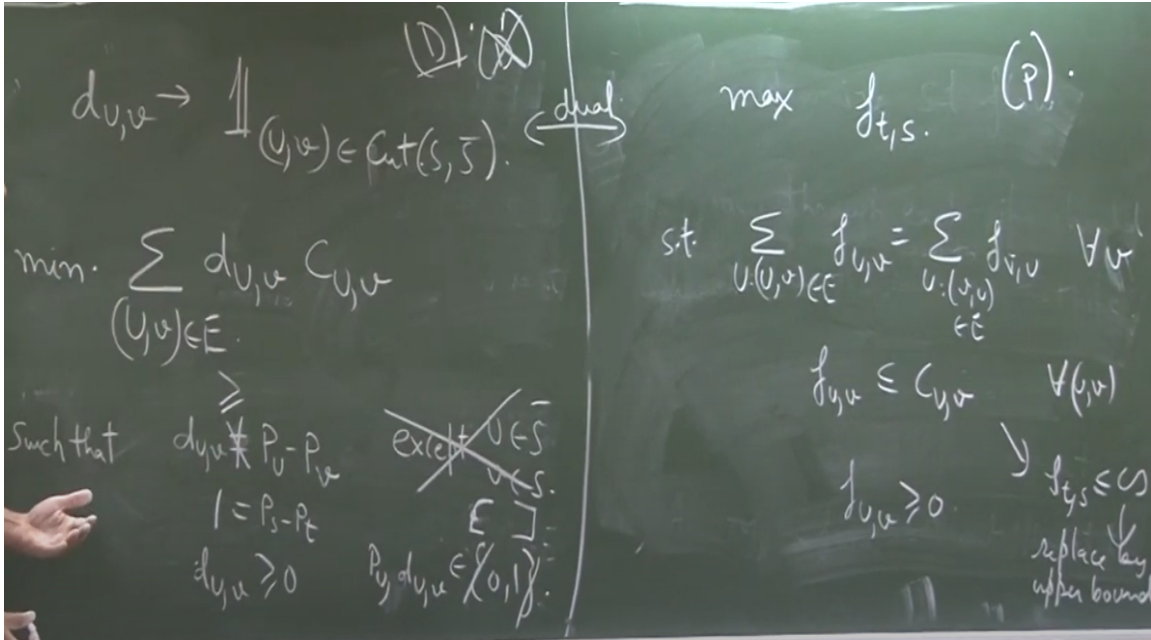 (D).
d_{u,v} → 𝟙_{(u,v) ∈ Cut(S, S̄)}.
min. Σ_{(u,v)∈E.} d_{u,v} C_{u,v}
≥
Such that d_{u,v} P_u - P_v except u∈S̄
v∈S.
1 = P_s - P_t [ ]
d_{u,v} ≥ 0 P_u, d_{u,v} ∈ {0,1}.
dual
max f_{t,s}. (P).
s.t. Σ_{u:(u,v)∈E} f_{u,v} = Σ_{u:(v,u)∈E} f_{v,u} ∀v
f_{u,v} ≤ C_{u,v} ∀(u,v)
f_{t,s} ≤ ∞
f_{u,v} ≥ 0.
↓
replace by
upper bound